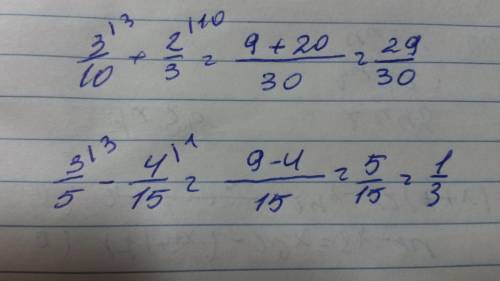 3/10 \3 + 2/3 \10 = (9 + 20)/30 = 29/30
3/5 \3 - 4/15 \1 = (9 - 4)/15 = 5/15 = 1/3